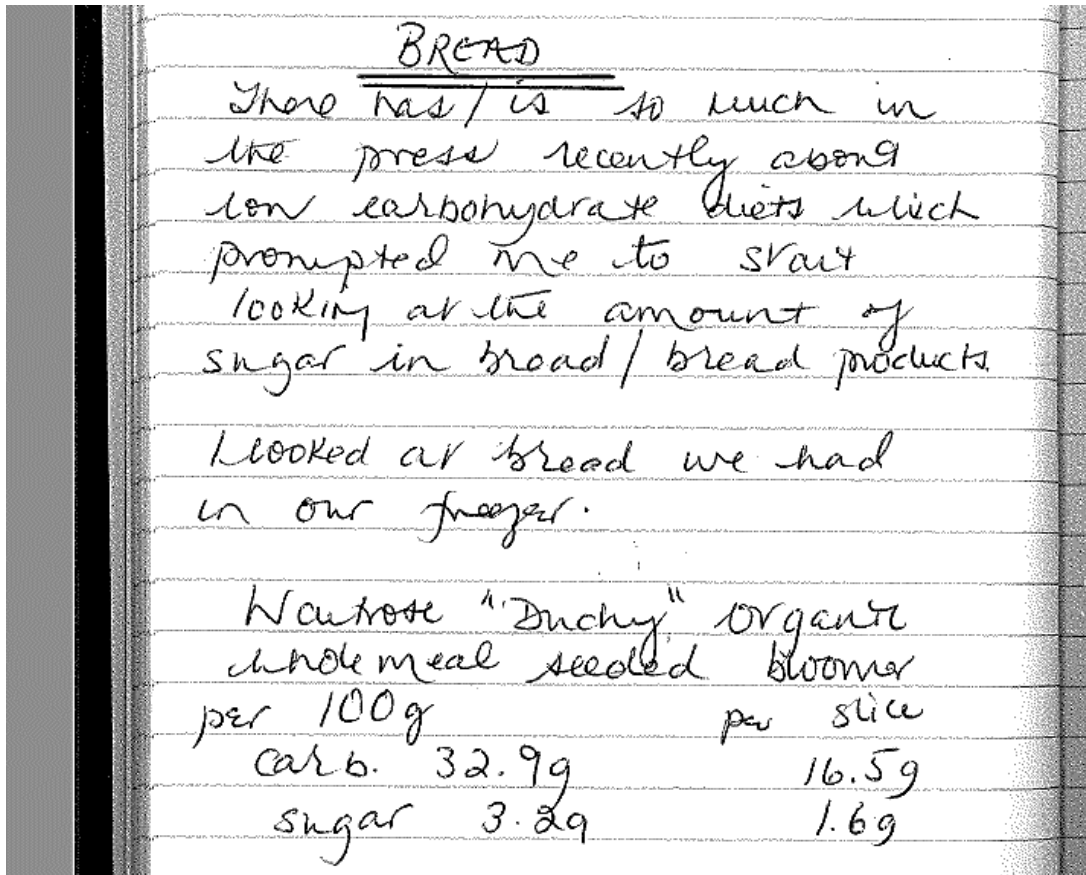 BREAD
There has / is so much in
the press recently about
low carbohydrate diets which
prompted me to start
looking at the amount of
sugar in bread / bread products.
I looked at bread we had
in our freezer.
Waitrose "Duchy" organic
wholemeal seeded bloomer
per 100g per slice
carb. 32.9g 16.5g
sugar 3.2g 1.6g